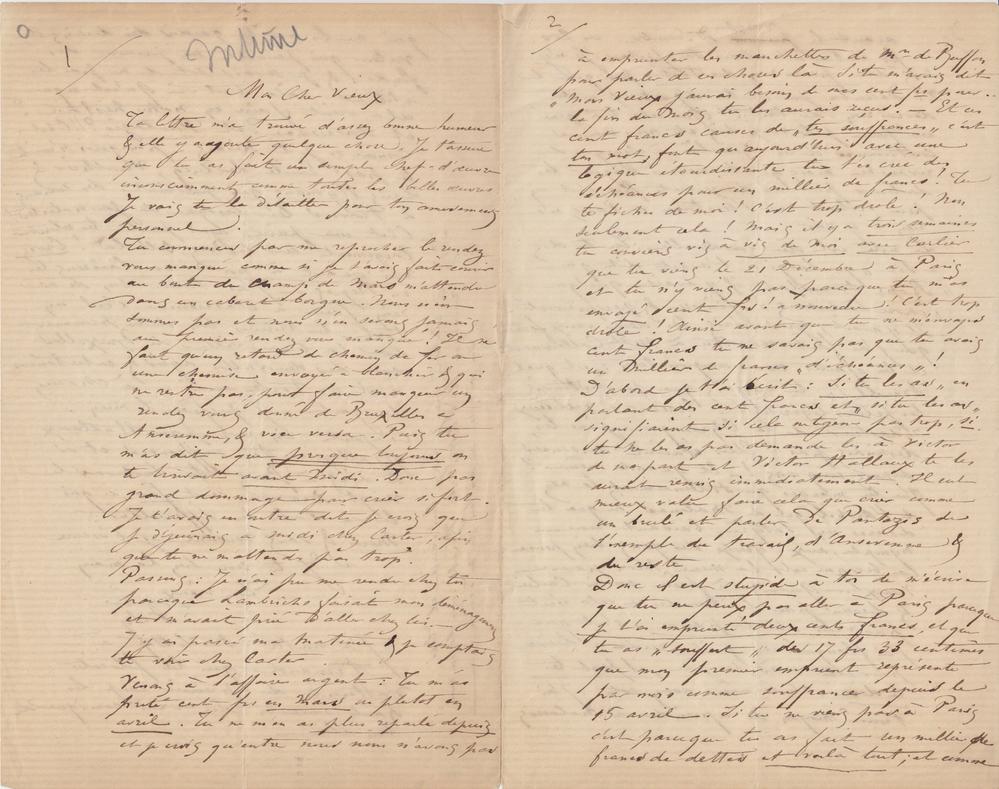 O
1
intime
Mon Cher Vieux
Ta lettre m'a trouvé d'assez bonne humeur
& elle y a ajouté quelque chose. Je t'assure
que tu as fait un simple chef-d'œuvre
inconsciemment comme toutes les belles œuvres
Je vais te le détailler pour ton amusement
personnel.
Tu commences par me reprocher le rendez
vous manqué comme si je t'avais fait courir
au bout du champ de Mars m'attendre
dans un cabaret borgne. Nous n'en
sommes pas et nous n'en serons jamais
au premier rendez vous manqué! Il ne
faut qu'un retard de chemin de fer ou
une chemise envoyée à blanchir & qui
ne rentre pas, pour faire manquer un
rendez vous donné de Bruxelles à
Anseremme, & vice versa. Puis tu
m'as dit que presque toujours on
te trouvait avant Midi. Donc pas
grand dommage pour crier si fort.
Je t'avais en outre dit je crois que
je déjeunais à midi chez Carter, afin
que tu ne m'attendes pas trop.
Passons: Je n'ai pu me rendre chez toi
parceque Lambrichs faisait mon déménagement
et m'avait prié d'aller chez lui.
J'y ai passé ma matinée & je comptais
te voir chez Carter.
Venons à l'affaire argent: Tu m'as
prêté cent frs en Mars ou plutot en
avril. Tu ne m'en as plus reparlé depuis
et je crois qu'entre nous nous n'avons pas
2
à emprunter les manchettes de Mr de Buffon
pour parler de ces choses la. Si tu m'avais dit
"Mon Vieux j'aurai besoin de mes cent frs pour
la fin du Mois tu les aurais reçus. — Et ces
cent francs causes de „tes souffrances„ c'est
ton mot, font qu'aujourd'hui avec une
logique etourdissante tu t'es créé des
échéances pour un millier de francs! Tu
te fiches de moi! C'est trop drole! Non
seulement cela! Mais il y a trois semaines
tu conviens vis à vis de moi avec Carlier
que tu viens le 21 Décembre à Paris
et tu n'y viens pas parceque tu m'as
envoyé cent frs! à nouveau! C'est trop
drôle! Ainsi avant que tu ne m'envoyas
cent francs tu ne savais pas que tu avais
un Millier de francs „d'échéances„!
D'abord je t'ai écrit: Si tu les as„ en
parlant des cent francs et „si tu les as„
signifiaient si cela ne te gene pas trop, si
tu ne les as pas demande les à Victor
de ma part et Victor Hallaux te les
aurait remis immédiatement. Il eut
mieux valu faire cela que crier comme
un brulé et parler de Pantazis de
l'exemple du travail, d'Anseremme &
du reste
Donc il est stupide à toi de m'écrire
que tu ne peux pas aller à Paris parceque
je t'ai emprunté deux cents francs, et que
tu as „souffert„ des 17 frs 33 centimes
que mon premier emprunt représente
par mois comme souffrances depuis le
15 avril. Si tu ne viens pas à Paris
c'est parceque tu as fait un millier de
francs de dettes et voilà tout; et comme